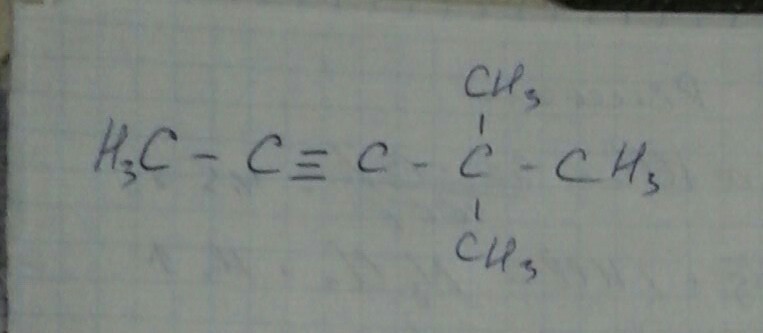 CH₃
H₃C - C ≡ C - C - CH₃
CH₃